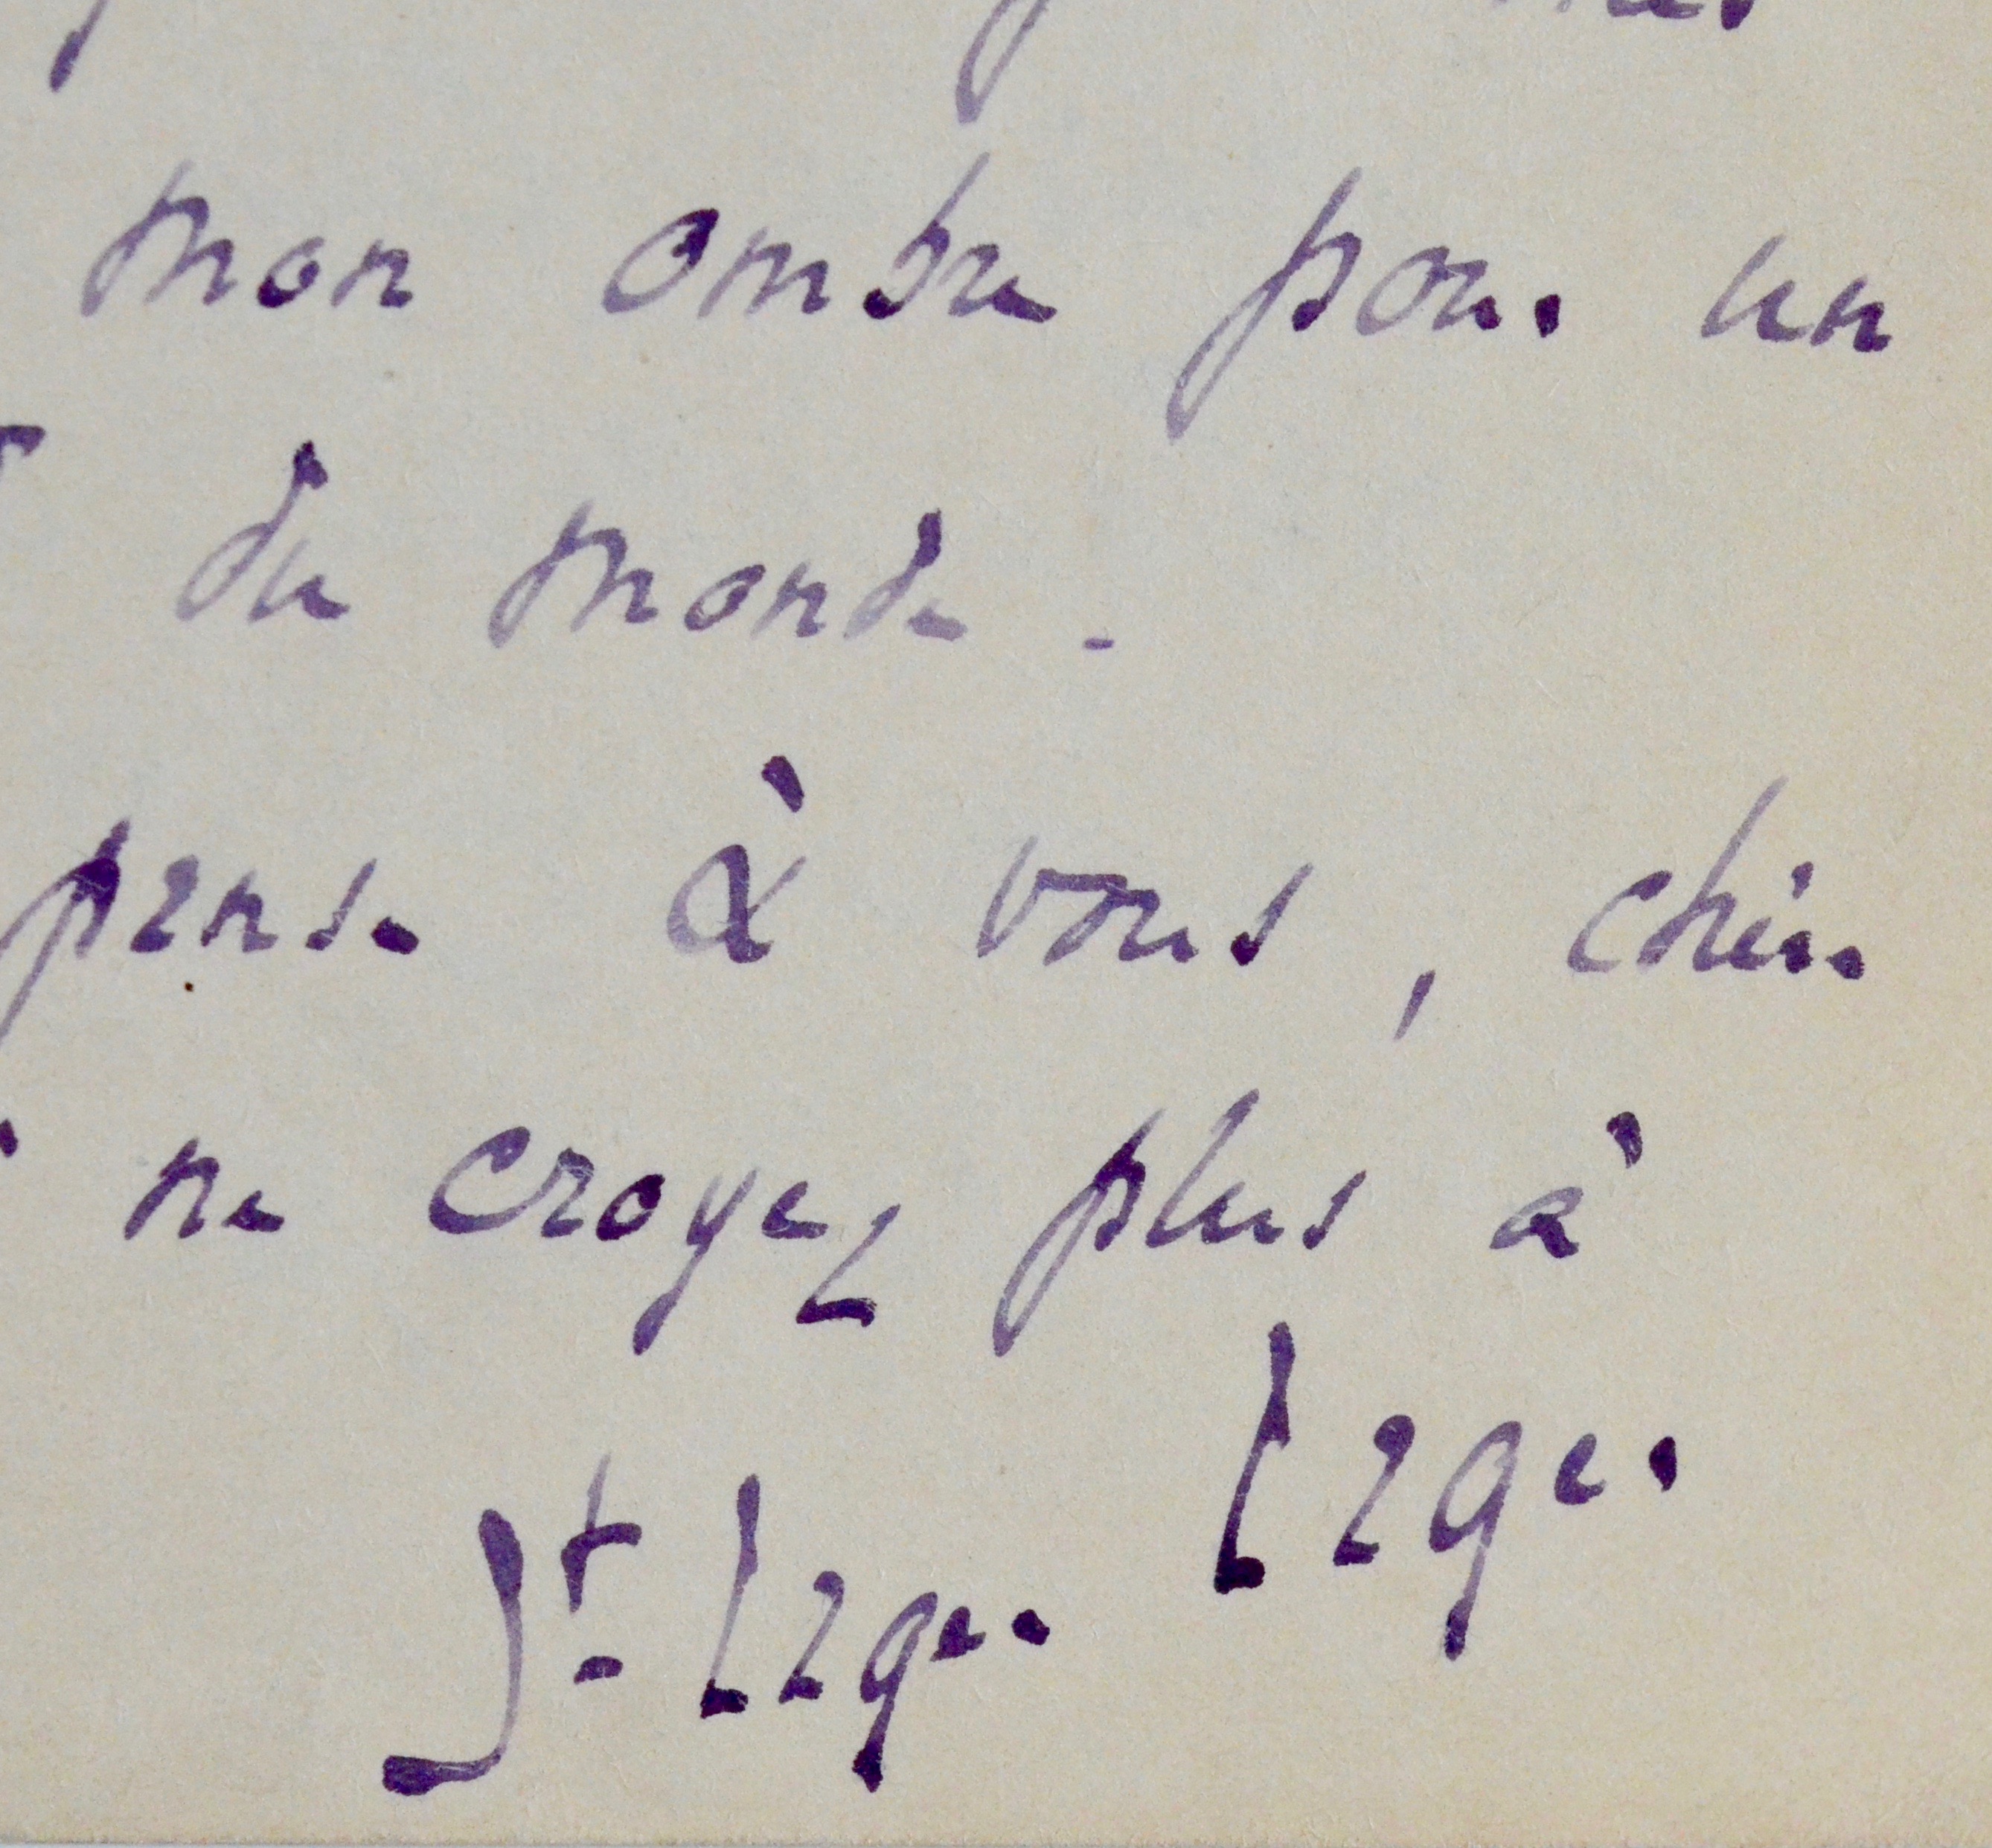 mon ombre pour un
du monde.
pense à vous, chère
ne croyez plus à
Leger
St. Leger